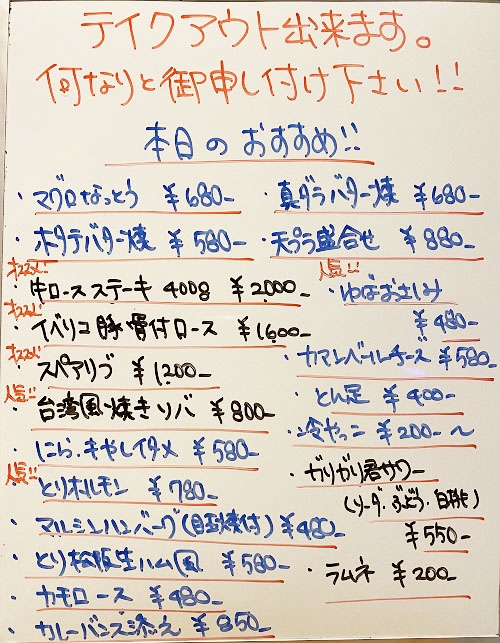 テイクアウト出来ます。
何なりと御申し付け下さい!!
本日のおすすめ!!
・マグロなっとう ¥680-
・ホタテバター焼 ¥580-
オススメ!
・牛ロースステーキ 400g ¥2,000-
オススメ!
・イベリコ豚骨付ロース ¥1,600-
オススメ!
・スペアリブ ¥1,200-
人気!!
・台湾風焼きソバ ¥800-
・にら・もやしイタメ ¥580-
人気!!
・とりホルモン ¥780-
・マルシンハンバーグ(目玉焼付) ¥480-
・とり松阪生ハム風 ¥580-
・カモロース ¥480-
・カレーバンズ添え ¥850-
・真ダラバター焼 ¥680-
・天プラ盛合せ ¥880-
人気!!
・ゆばおさしみ
¥480-
・カマンベールチーズ ¥580-
・とん足 ¥400-
・冷やっこ ¥200-〜
・ガリガリ君サワー
(ソーダ、ぶどう、白桃)
¥550-
・ラムネ ¥200-